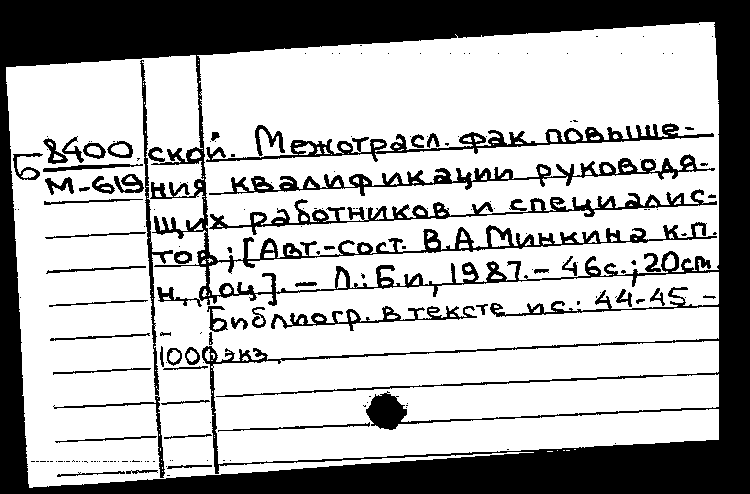 Б 8400 ской. Межотрасл. фак. повыше-
М-619 ния квалификации руководя-
щих работников и специалис-
тов; [Авт.-сост. В.А.Минкина к.п.
н., доц]. – Л.: Б.и., 1987. – 46с.; 20см.
Библиогр. в тексте и с.: 44-45 –
1000 экз.